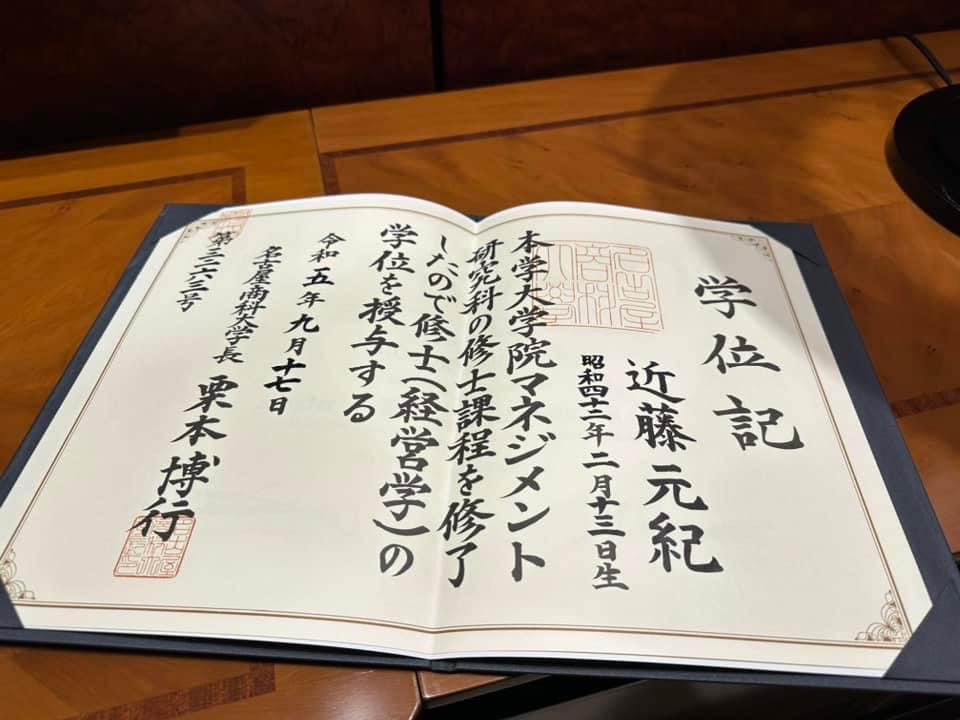 学位記
近藤元紀
昭和四十二年二月十三日生
本学大学院マネジメント
研究科の修士課程を修了
したので修士(経営学)の
学位を授与する
令和五年九月十七日
名古屋商科大学長
栗本博行
第三二六三号